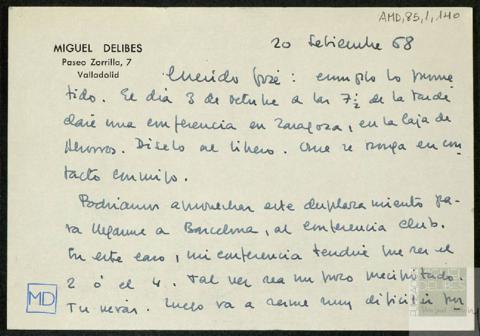 AMD,85,1,140
20 Setiembre 68
MIGUEL DELIBES
Paseo Zorrilla, 7
Valladolid
Querido José: cumplo lo prome-
tido. El día 3 de octubre a las 7½ de la tarde
daré una conferencia en Zaragoza, en la Caja de
Ahorros. Díselo al librero. Que se ponga en con-
tacto conmigo.
Podríamos aprovechar este desplazamiento pa-
ra llegarme a Barcelona, al conferencia Club.
En este caso, mi conferencia tendría que ser el
2 ó el 4. Tal vez sea un poco precipitado.
Tu verás. Luego va a serme muy difícil
MD